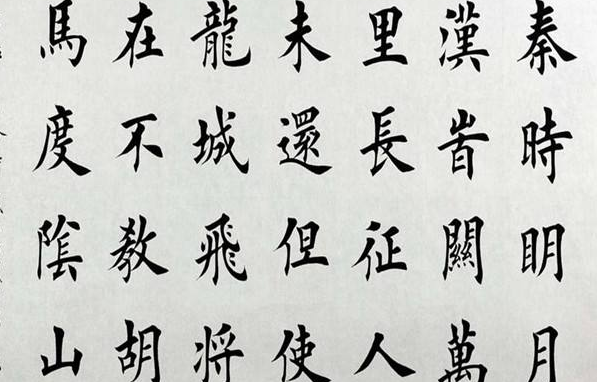 秦時眀月
漢旹關萬
里長征人
未還但使
龍城飛将
在不教胡
馬度陰山